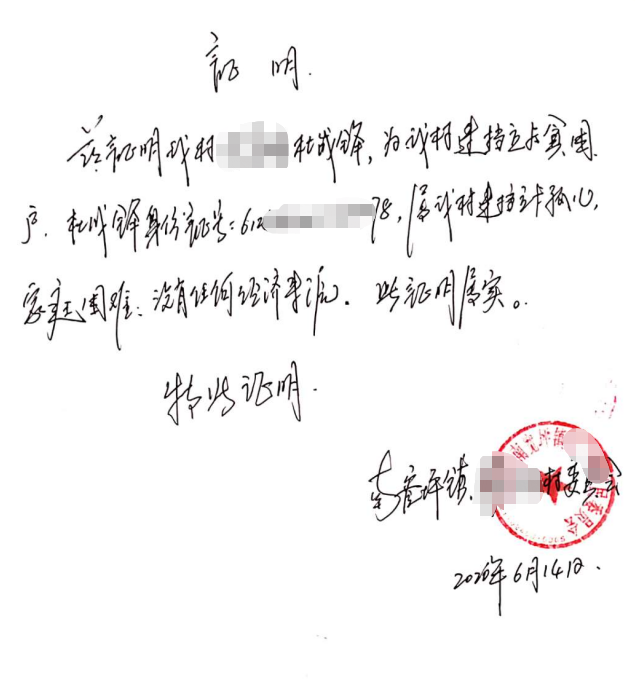 证 明.
兹证明我村 杜成锋,为我村建档立卡贫困
户.杜成锋身份证号:612 78,属我村建档立卡孤儿,
家庭困难、没有任何经济来源.此证明属实。
特此证明.
镇 村委会
2020年6月14日.